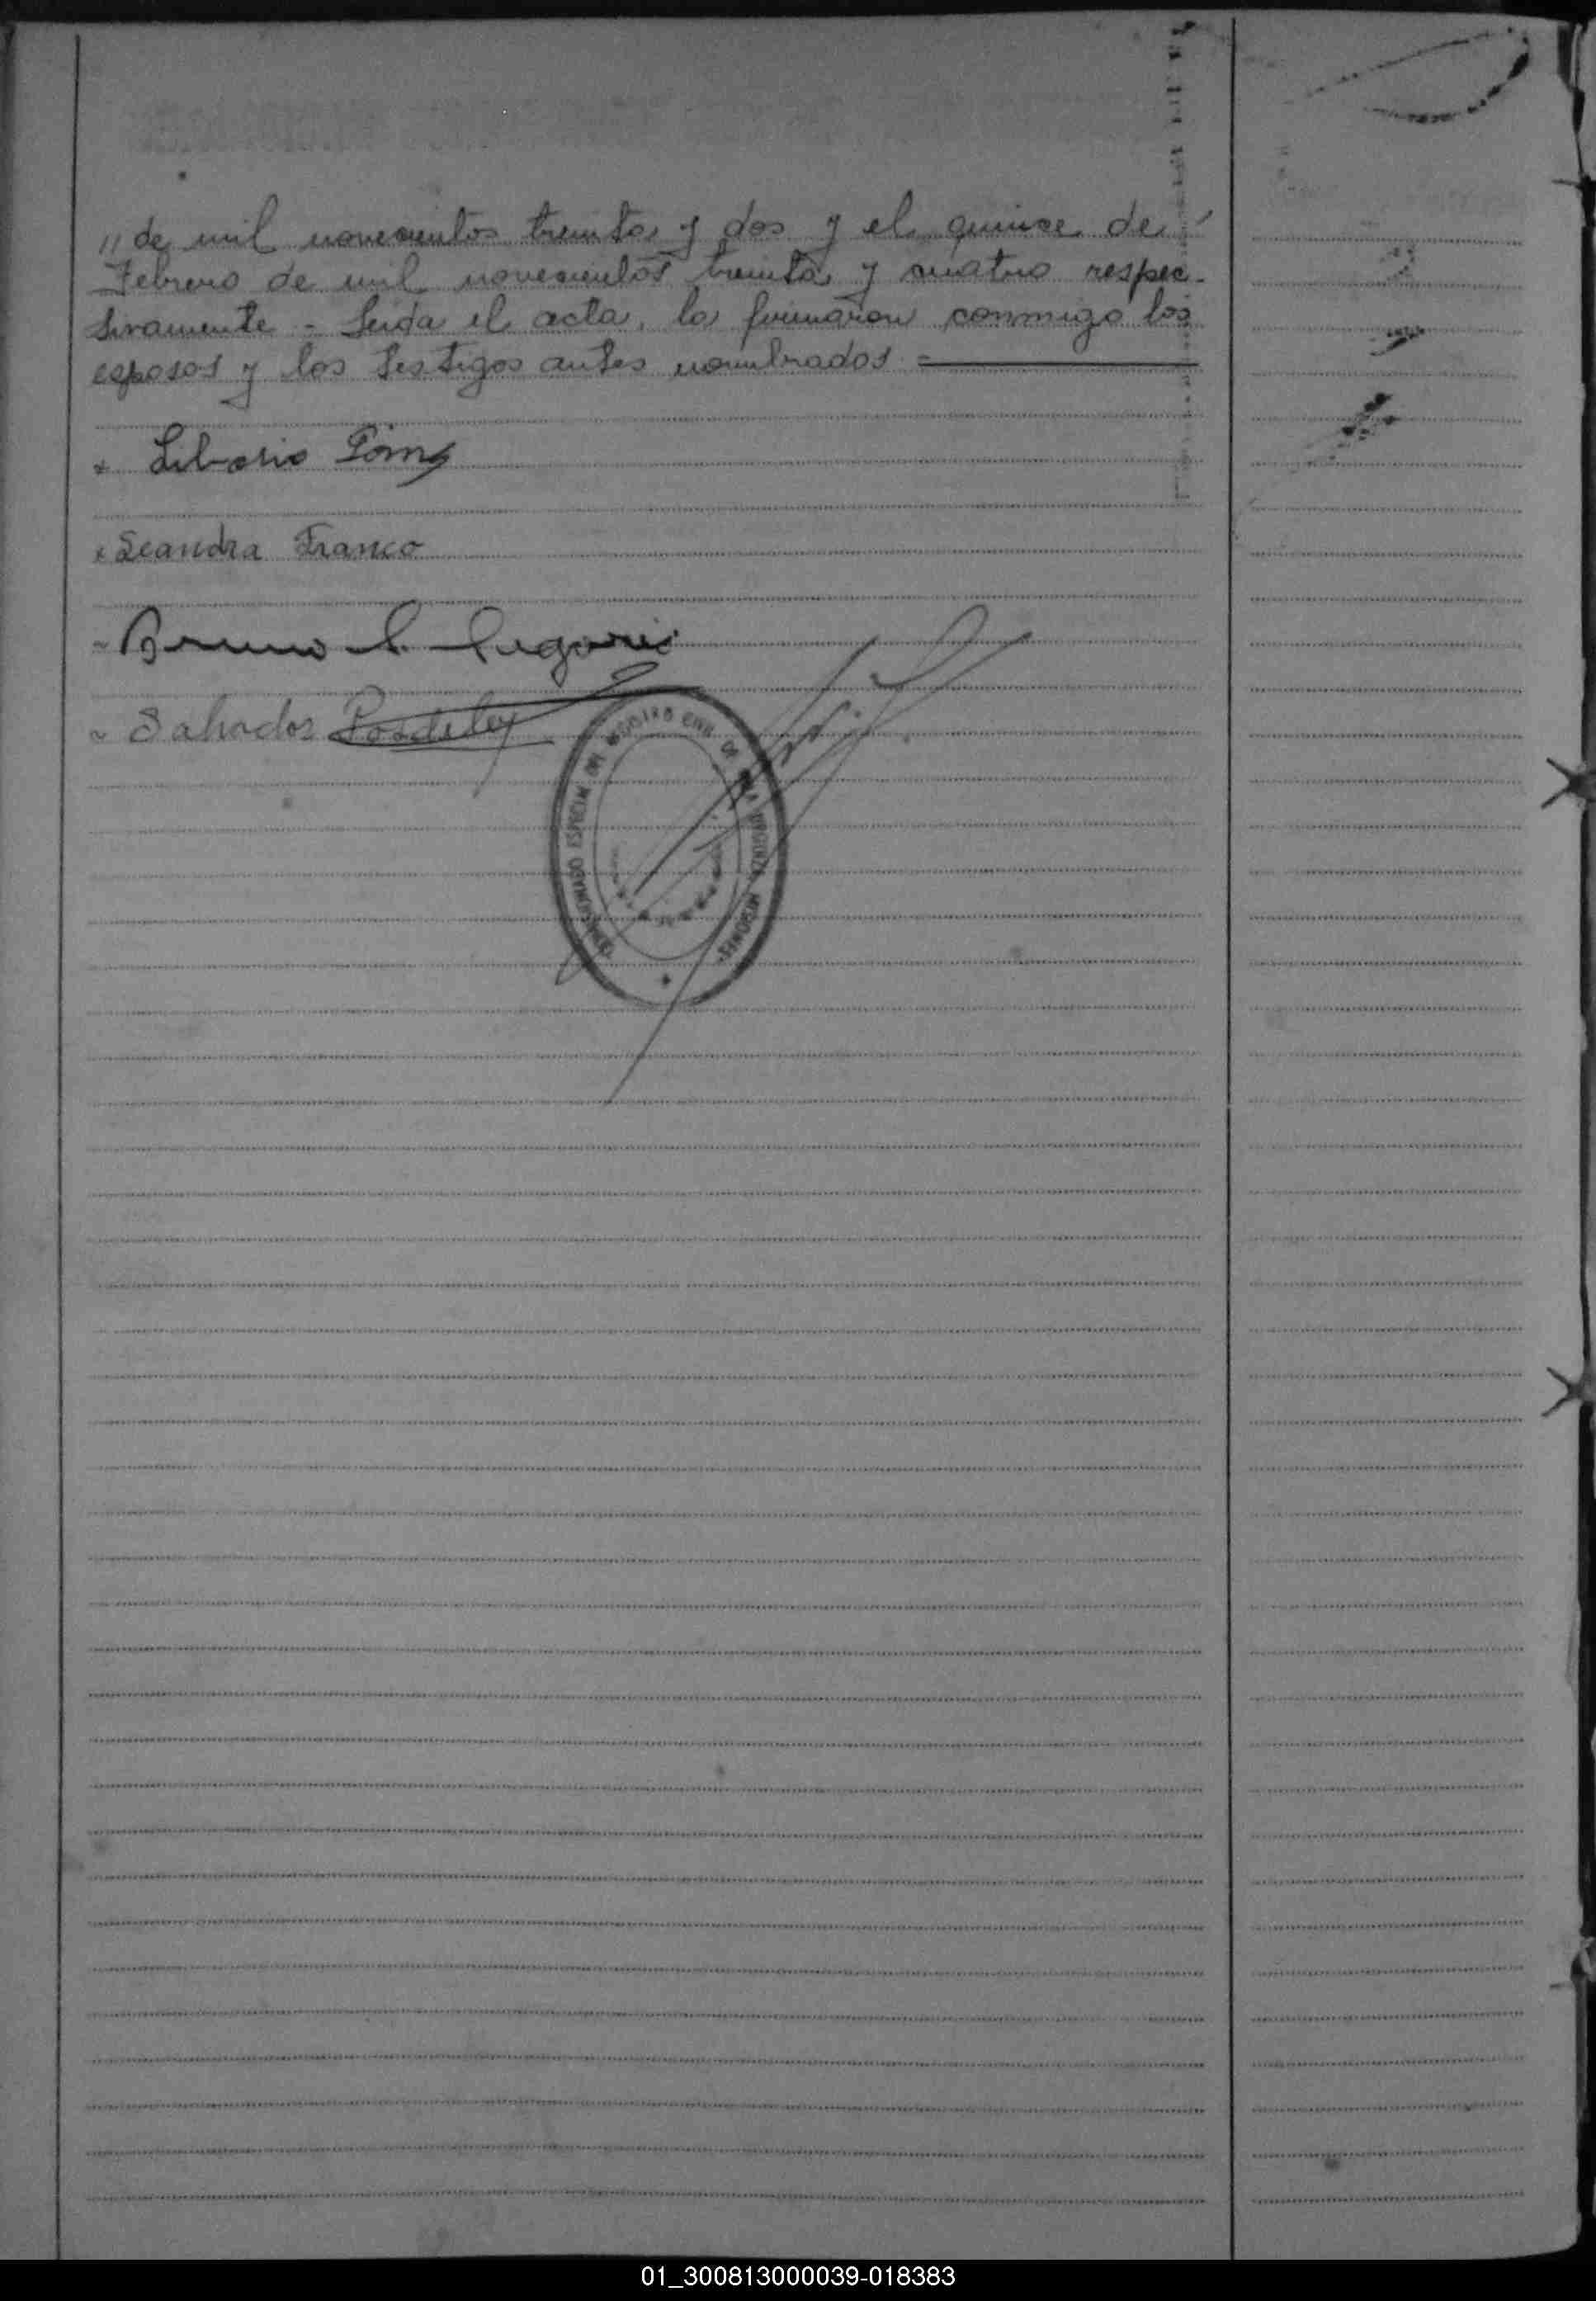 " de mil novecientos treinta y dos y el quince de
Febrero de mil novecientos treinta y cuatro respec-
tivamente - Leida el acta, la firmaron conmigo los
esposos y los testigos antes nombrados =
Liborio
Leandra Franco
Bruno
Salvador
ESPECIAL DEL REGISTRO CIVIL DE MISIONES
01_300813000039-018383